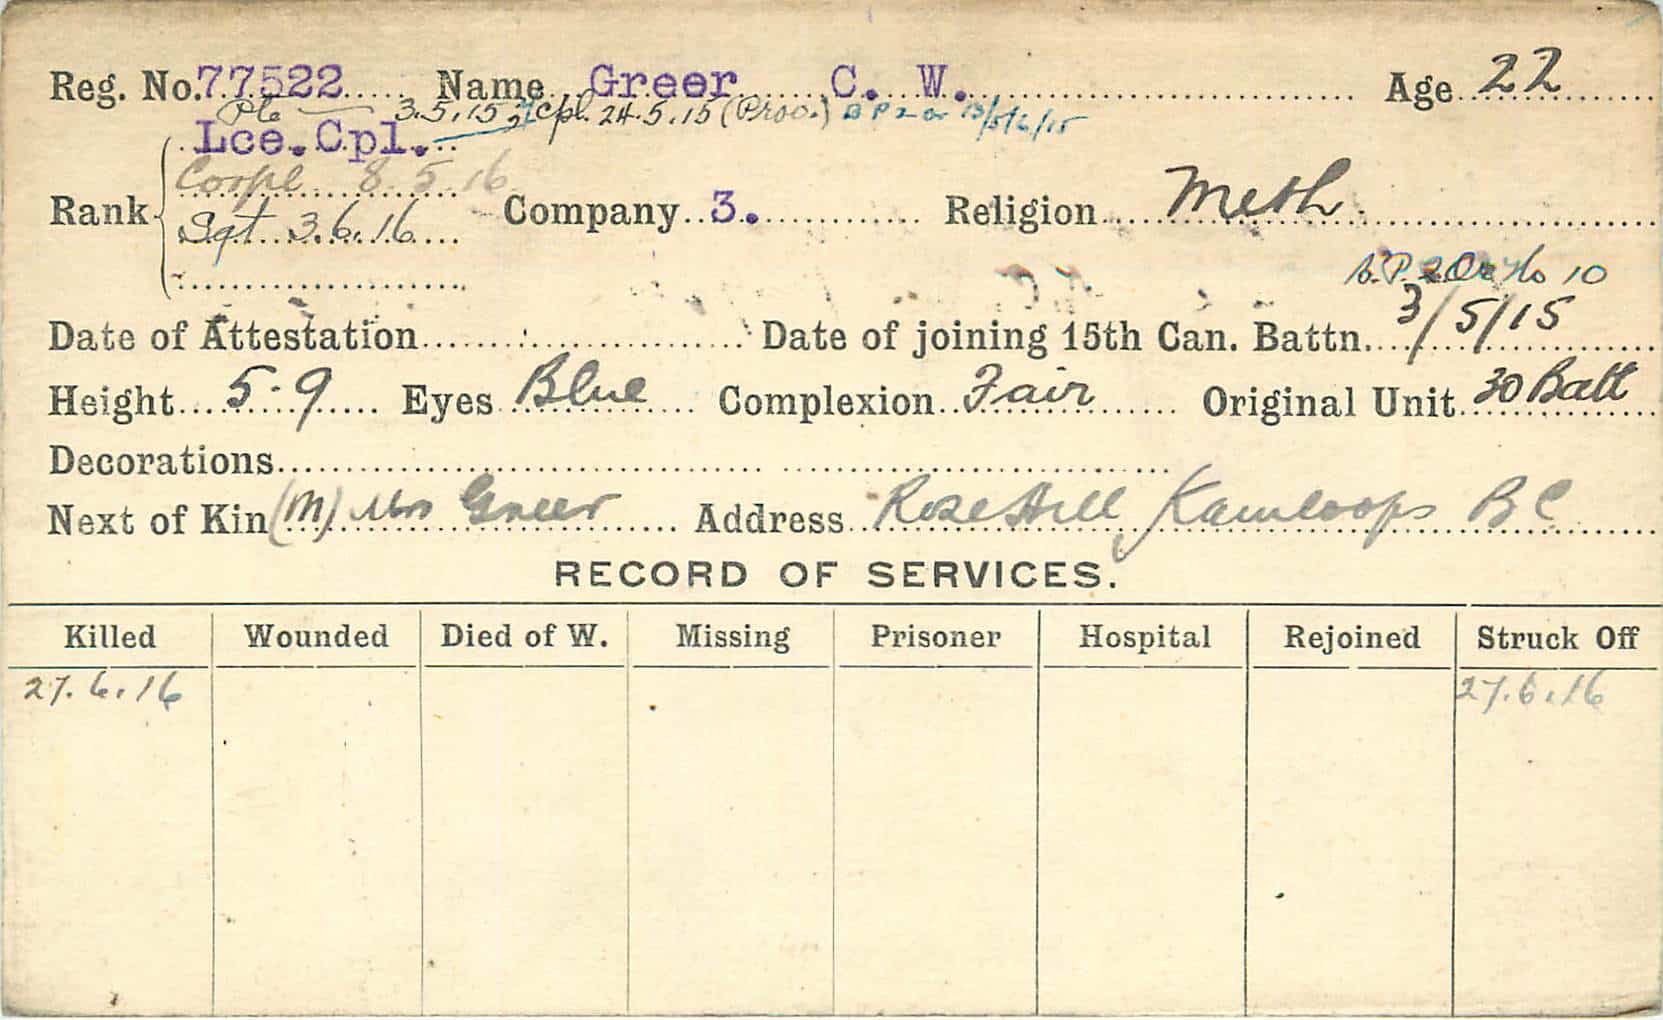 Reg. No. 77522 Name Greer C. W. Age 22
Pte 3.5.15 L/Cpl. 24.5.15 (Prov.) B P 2 Or 13/5/6/15
Lce. Cpl.
Corpl 8.5.16
Rank Company 3. Religion Meth.
Sgt 3.6.16
B.P. 2 Or No 10
Date of Attestation Date of joining 15th Can. Battn. 3/5/15
Height 5.9 Eyes Blue Complexion Fair Original Unit 30 Batt
Decorations
Next of Kin (M) Mrs Greer Address Rose Hill Kamloops BC
RECORD OF SERVICES.
Killed Wounded Died of W. Missing Prisoner Hospital Rejoined Struck Off
27.6.16 27.6.16